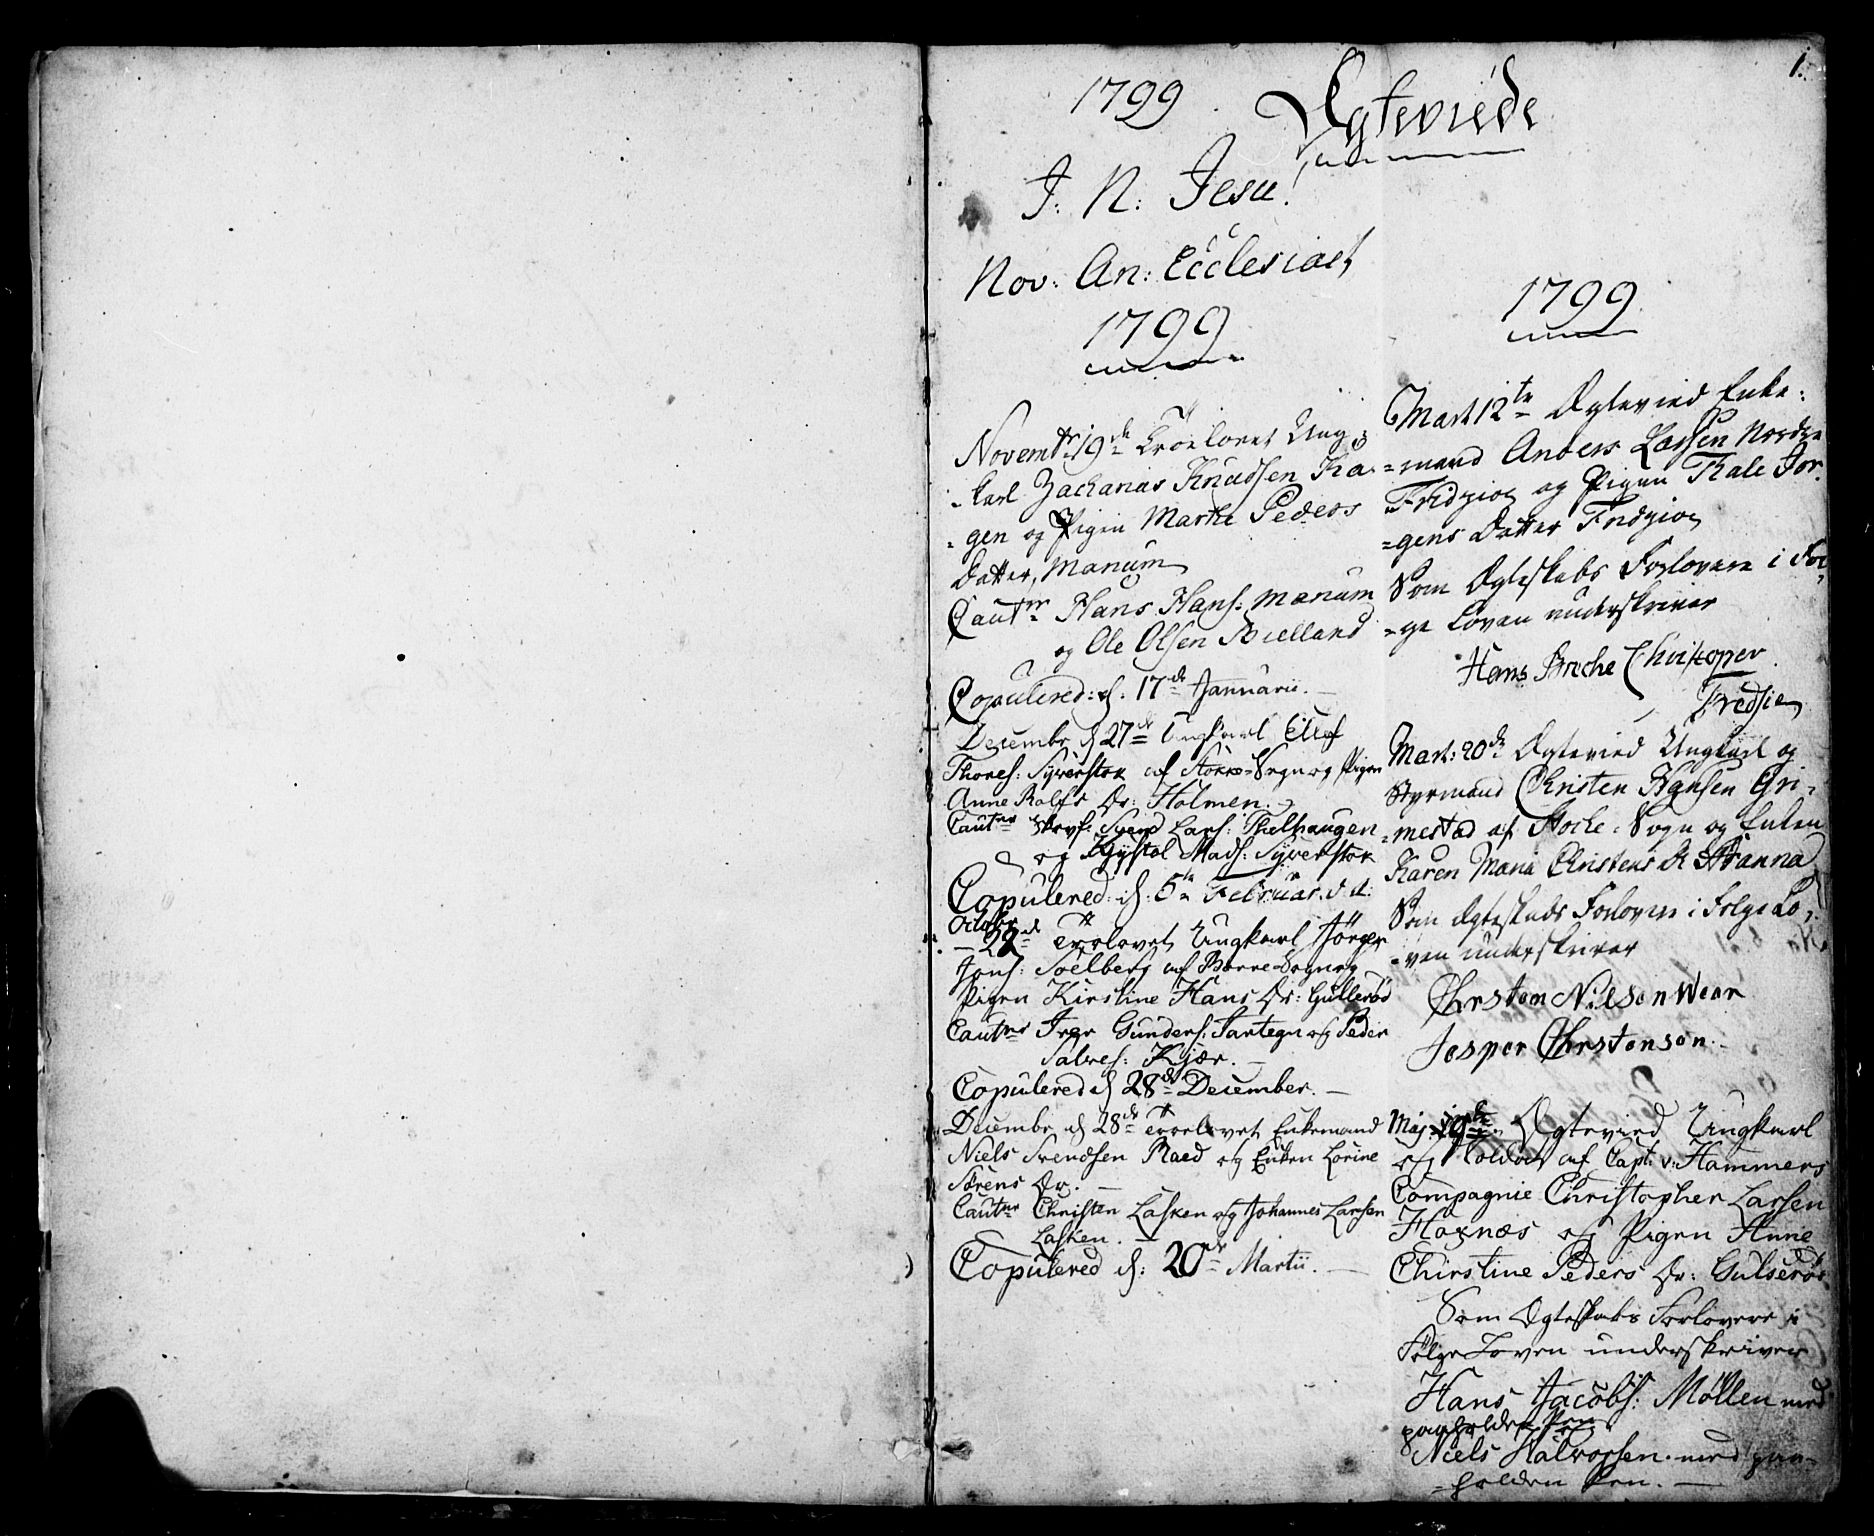 1.
1799
Ægteviede
J: N: Jesu!
Nov: An: Ecclesiast
1799
Novembr 19de Troelovet Ung-
-karl Zacharias Knudsen Ha-
-gen og Pigen Marthe Peders
Datter, Manum
Cautr Hans Hans: Manum
og Ole Olsen Bielland
Copulered: d: 17de Januarii. -
Decembr d 27de Ungkarl Ellef
Thores: Syverstox af Stokke-Sogn og Pigen
Anne Rolfs Dr: Holmen. -
Cautnr Svend Lars: Thelhaugen
og Kystol Mads: Syverstox
Copulered: d: 5te Februar.
Octobr
- 22de Trolovet Ungkarl Jörgen
Jons: Soelberg af Borre-Sogn og
Pigen Kirstine Hans Dr: Gullerød
Cautnr Iver Gunders: Fartegn og Peder
Salves: Kjær. -
Copulered d 28de December. -
Decembr d 28de Troelovet Enkemand
Niels Svendsen Raed og Enken Lorine
Sørens Dr. -
Cautnr Christen Lasken og Johannes Larssen
Lasken. -
Copulered d: 20de Martii. -
1799
Mart 12te Ægtevied Enke-
-mand Anders Larssen Nordre
Fridgion og Pigen Thale Jor-
-gens Datter Fridgion
Som Ægteskabs Forlovere i Føl-
-ge Loven underskriver
Hans Breche Christoper
Fredsien
Mart: 20de Ægtevied Ungkarl og
Styrmand Christen Hansen Gri-
-mestad af Stocke-Sogn og Enken
Karen Maria Christens Dr Aranna
Som Ægteskabs Forlovere i Følge Lo-
-ven underskriver
Chrsten Nilsen Wear
Jesper Chrstensen
Maj: 19de Ægtevied Ungkarl
og Soldat af Capt: v: Hammers
Compagnie Christopher Larsen
Haxnæs og Pigen Anne
Chirstine Peders Dr: Gulserød
Som Ægteskabs Forlovere i
Følge Loven underskriver
Hans Jacobs: Møllen med
paaholden Pen
Niels Halvorsen med paa-
-holden Pen. -